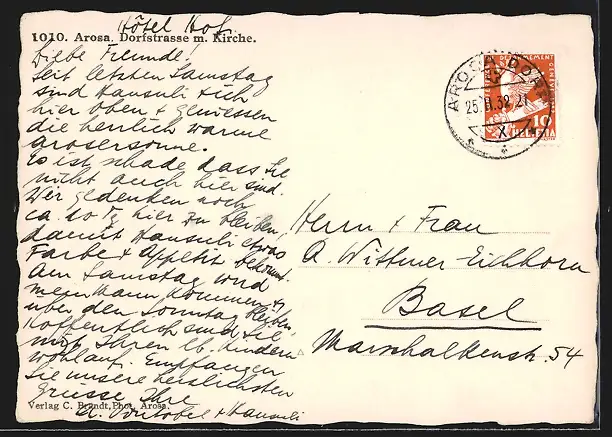 Hôtel Hof.
1010. Arosa. Dorfstrasse m. Kirche.
Liebe Freunde!
Seit letzten Samstag
sind Hansuli & ich
hier oben & geniessen
die herrlich warme
Arosersonne.
Es ist schade dass Sie
nicht auch hier sind.
Wir gedenken noch
ca. 10 Tg hier zu bleiben,
damit Hansuli etwas
Farbe & Appetit bekommt.
Am Samstag wird
mein Mann kommen &
über den Sonntag bleiben.
Hoffentlich sind Sie
mit Ihren lb. Kindern
wohlauf. Empfangen
Sie unsere herzlichsten
Grüsse Ihre
& Hansuli
Verlag C. Brandt, Phot. Arosa.
AROSA DORF
25.II.32.21
X
10
HELVETIA
Herrn & Frau
A. Wittmer-Eichhorn
Basel
Marschalkenstr. 54